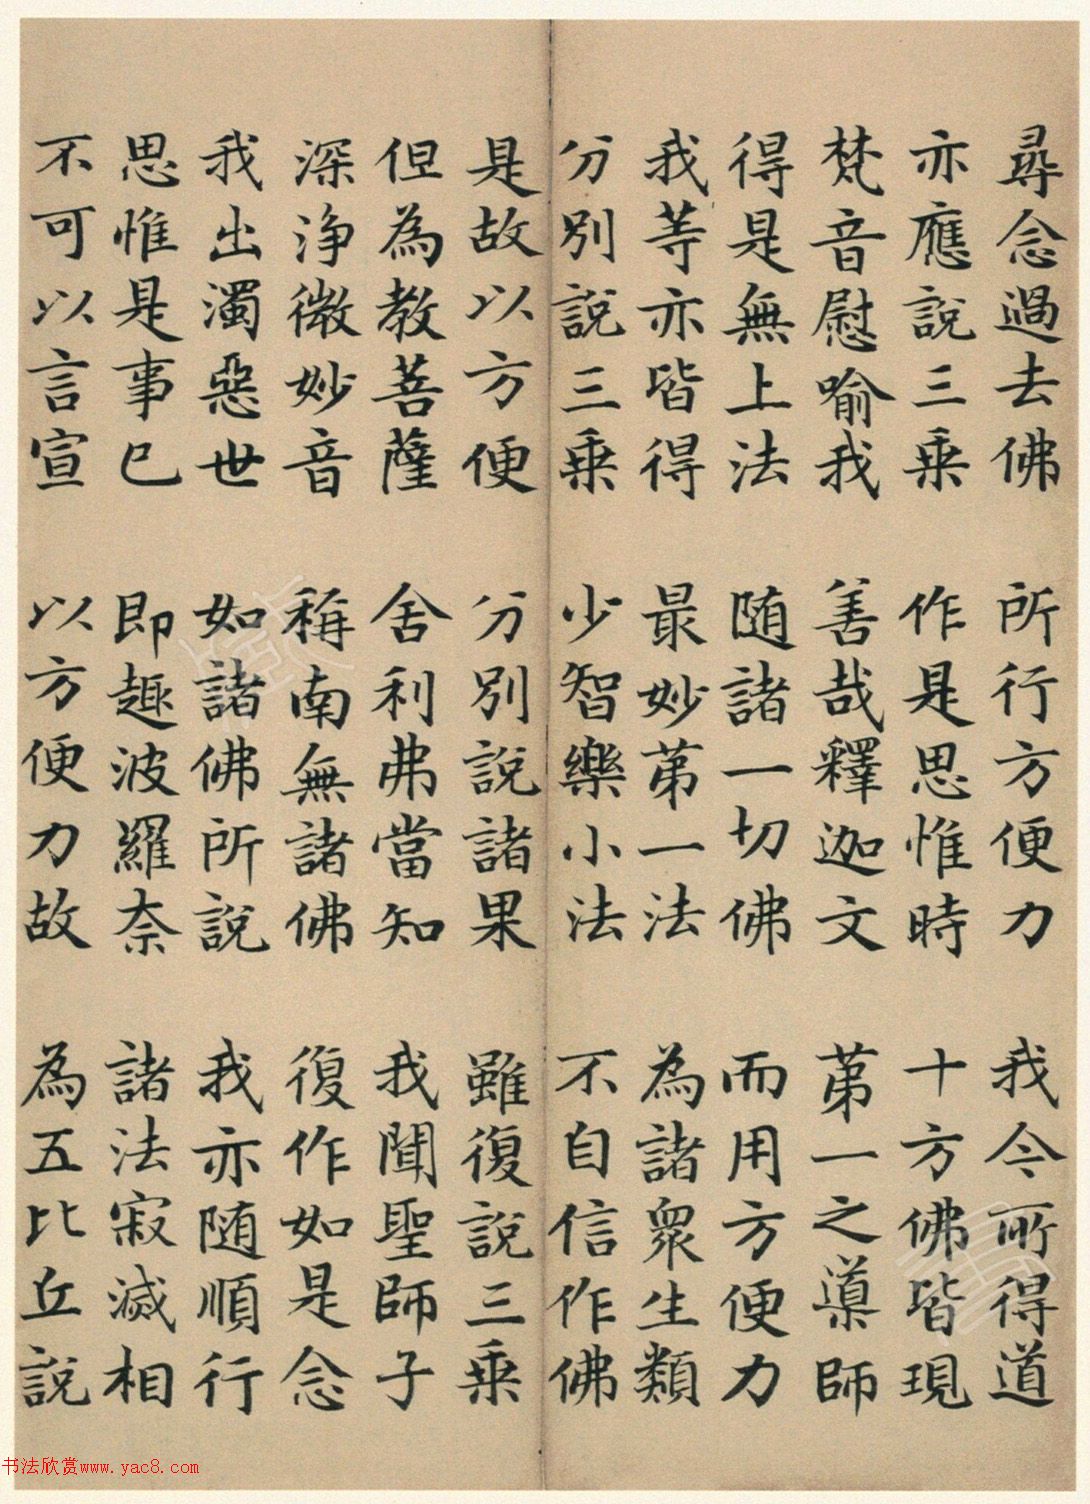 尋念過去佛 所行方便力 我今所得道
亦應說三乘 作是思惟時 十方佛皆現
梵音慰喻我 善哉釋迦文 第一之導師
得是無上法 随諸一切佛 而用方便力
我等亦皆得 最妙第一法 為諸衆生類
分別說三乘 少智樂小法 不自信作佛
是故以方便 分別說諸果 雖復說三乘
但為教菩薩 舍利弗當知 我聞聖師子
深浄微妙音 稱南無諸佛 復作如是念
我出濁惡世 如諸佛所說 我亦随順行
思惟是事已 即趣波羅奈 諸法寂滅相
不可以言宣 以方便力故 為五比丘說
书法欣赏www.yac8.com